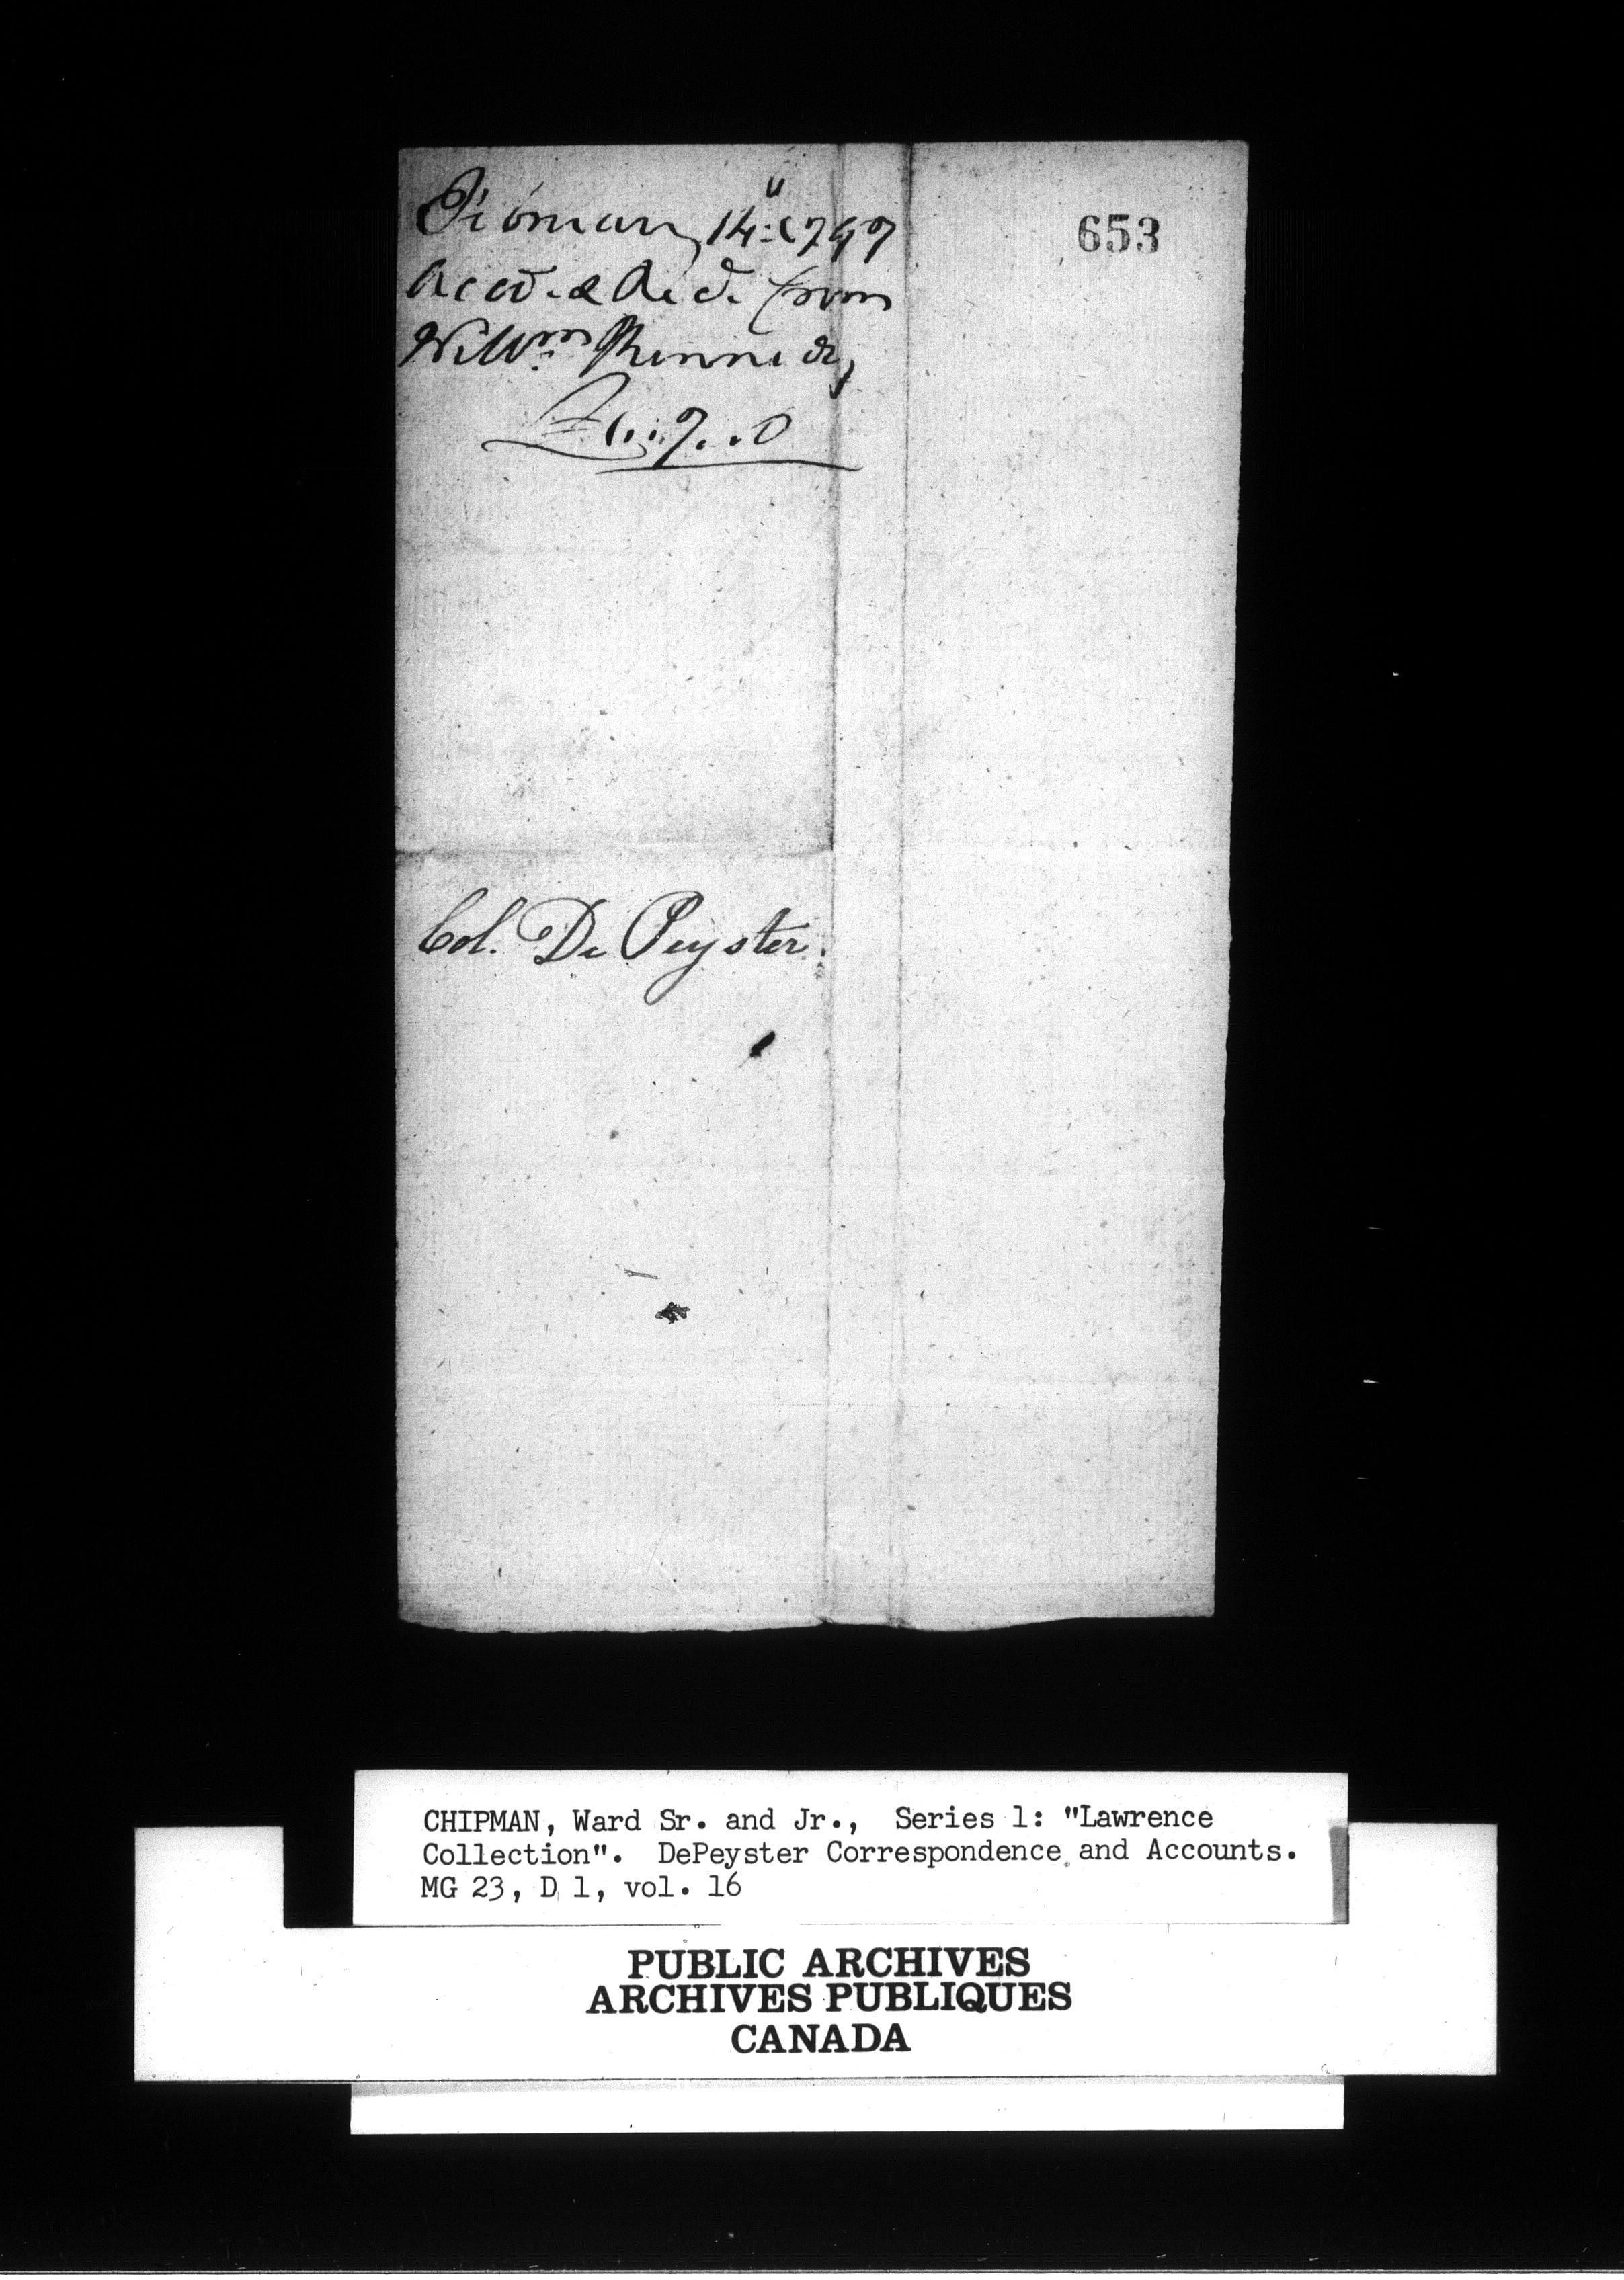 Febmary 14th: 1797
Accot. & Recd. from
Willm. Kennedy
£1..7..0
653
Col. De Peyster.
CHIPMAN, Ward Sr. and Jr., Series 1: "Lawrence
Collection". DePeyster Correspondence and Accounts.
MG 23, D 1, vol. 16
PUBLIC ARCHIVES
ARCHIVES PUBLIQUES
CANADA